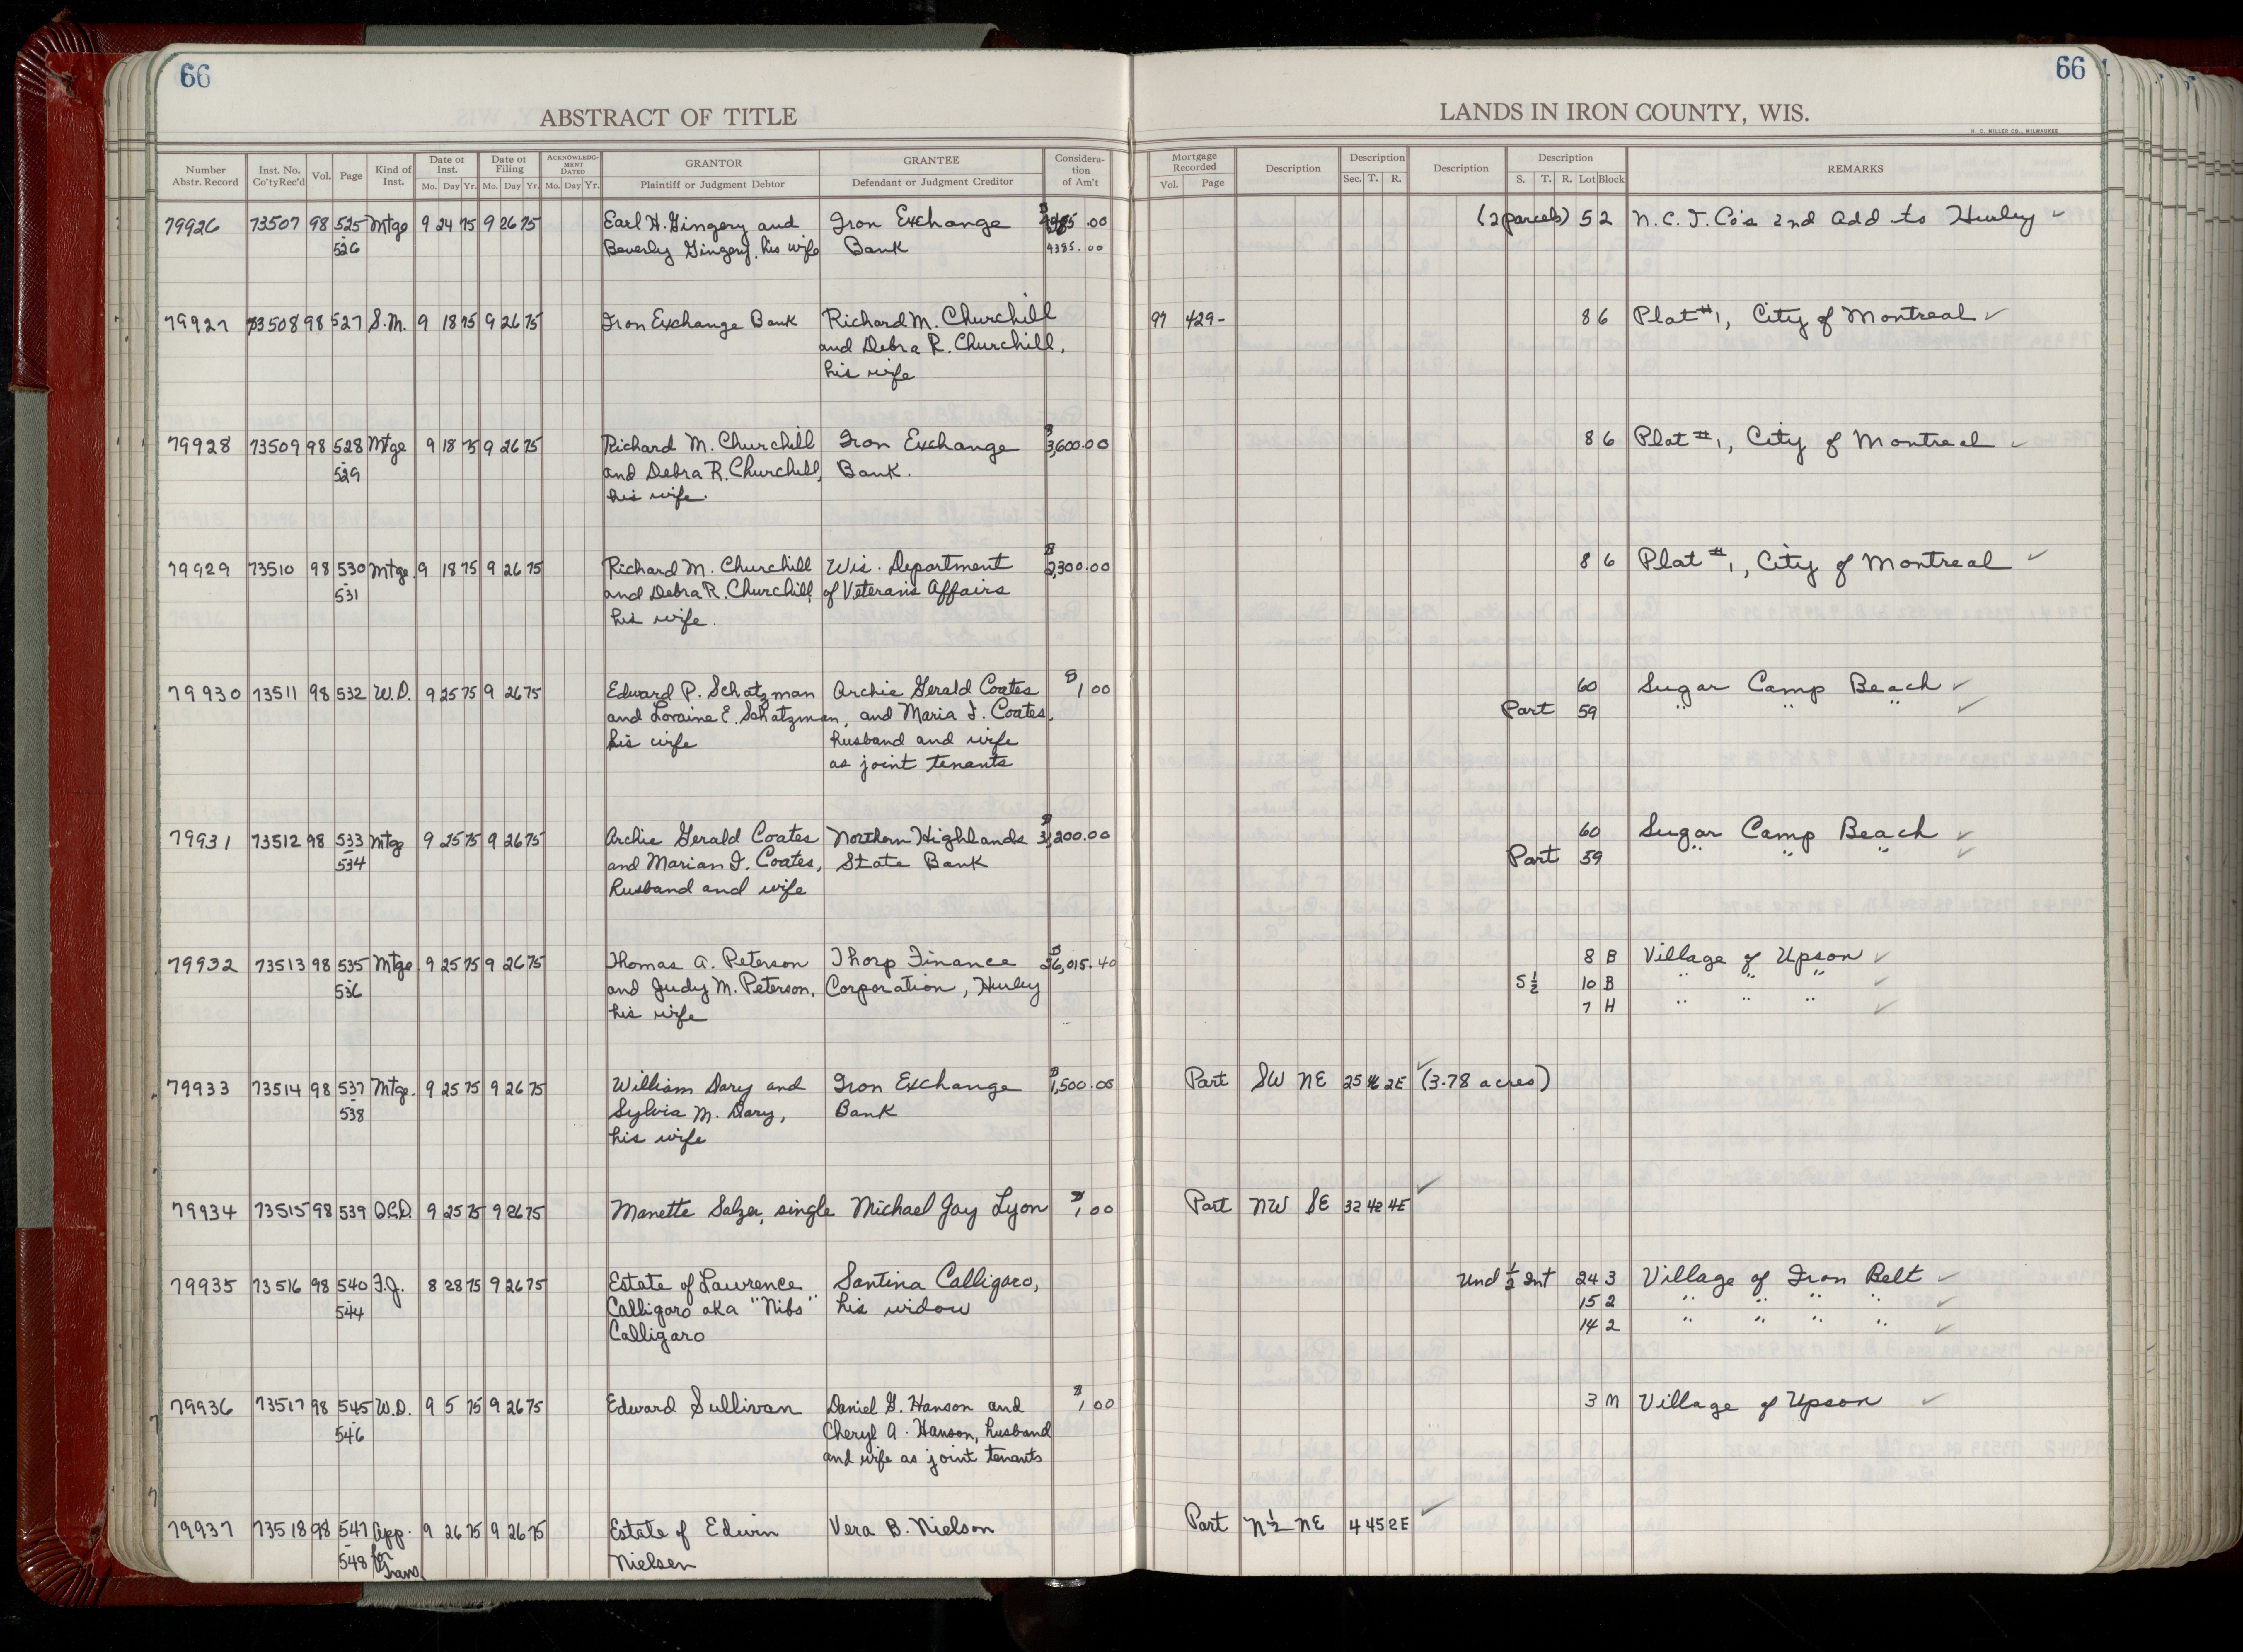 66
66
ABSTRACT OF TITLE
LANDS IN IRON COUNTY, WIS.
H. C. MILLER CO., MILWAUKEE
Number Abstr. Record | Inst. No. Co'ty Rec'd | Vol. | Page | Kind of Inst. | Date of Inst. Mo. Day Yr. | Date of Filing Mo. Day Yr. | ACKNOWLEDG-MENT DATED Mo. Day Yr. | GRANTOR Plaintiff or Judgment Debtor | GRANTEE Defendant or Judgment Creditor | Considera-tion of Am't | Mortgage Recorded Vol. Page | Description | Description Sec. T. R. | Description | Description S. T. R. Lot Block | REMARKS
79926 73507 98 525 Mtge 9 24 75 9 26 75 Earl H. Gingery and Iron Exchange .00 (2 parcels) 5 2 N.C.I. Co's 2nd Add to Hurley ✓
526 Beverly Gingery, his wife Bank 4385.00
79927 73508 98 527 S.M. 9 18 75 9 26 75 Iron Exchange Bank Richard M. Churchill 97 429- 8 6 Plat #1, City of Montreal ✓
and Debra R. Churchill,
his wife
79928 73509 98 528 Mtge 9 18 75 9 26 75 Richard M. Churchill Iron Exchange $3,600.00 8 6 Plat #1, City of Montreal ✓
529 and Debra R. Churchill, Bank.
his wife.
79929 73510 98 530 Mtge. 9 18 75 9 26 75 Richard M. Churchill Wis. Department $2,300.00 8 6 Plat #1, City of Montreal ✓
531 and Debra R. Churchill, of Veterans Affairs
his wife.
79930 73511 98 532 W.D. 9 25 75 9 26 75 Edward P. Schatzman Archie Gerald Coates $1,00 60 Sugar Camp Beach ✓
and Loraine E. Schatzman, and Maria I. Coates, Part 59 " " " ✓
his wife husband and wife
as joint tenants
79931 73512 98 533 Mtge 9 25 75 9 26 75 Archie Gerald Coates Northern Highlands ,200.00 60 Sugar Camp Beach ✓
534 and Marian I. Coates, State Bank Part 59 " " " ✓
husband and wife
79932 73513 98 535 Mtge. 9 25 75 9 26 75 Thomas A. Peterson Thorp Finance $26,015.40 8 B Village of Upson ✓
536 and Judy M. Peterson, Corporation, Hurley S½ 10 B " " " ✓
his wife 7 H " " " ✓
79933 73514 98 537 Mtge. 9 25 75 9 26 75 William Dary and Iron Exchange $1,500.00 Part SW NE 25 46 2E ✓ (3.78 acres)
538 Sylvia M. Dary, Bank
his wife
79934 73515 98 539 Q.C.D. 9 25 75 9 26 75 Manette Salzer, single Michael Jay Lyon $1,00 Part NW SE 32 42 4E ✓
79935 73516 98 540 F.J. 8 28 75 9 26 75 Estate of Lawrence Santina Calligaro, Und ½ Int 24 3 Village of Iron Belt ✓
544 Calligaro aka "Nibs" his widow 15 2 " " " " ✓
Calligaro 14 2 " " " " ✓
79936 73517 98 545 W.D. 9 5 75 9 26 75 Edward Sullivan Daniel G. Hanson and $1,00 3 M Village of Upson ✓
546 Cheryl A. Hanson, husband
and wife as joint tenants
79937 73518 98 547 App. 9 26 75 9 26 75 Estate of Edwin Vera B. Nielson Part N½ NE 4 45 2E ✓
548 for Trans. Nielsen